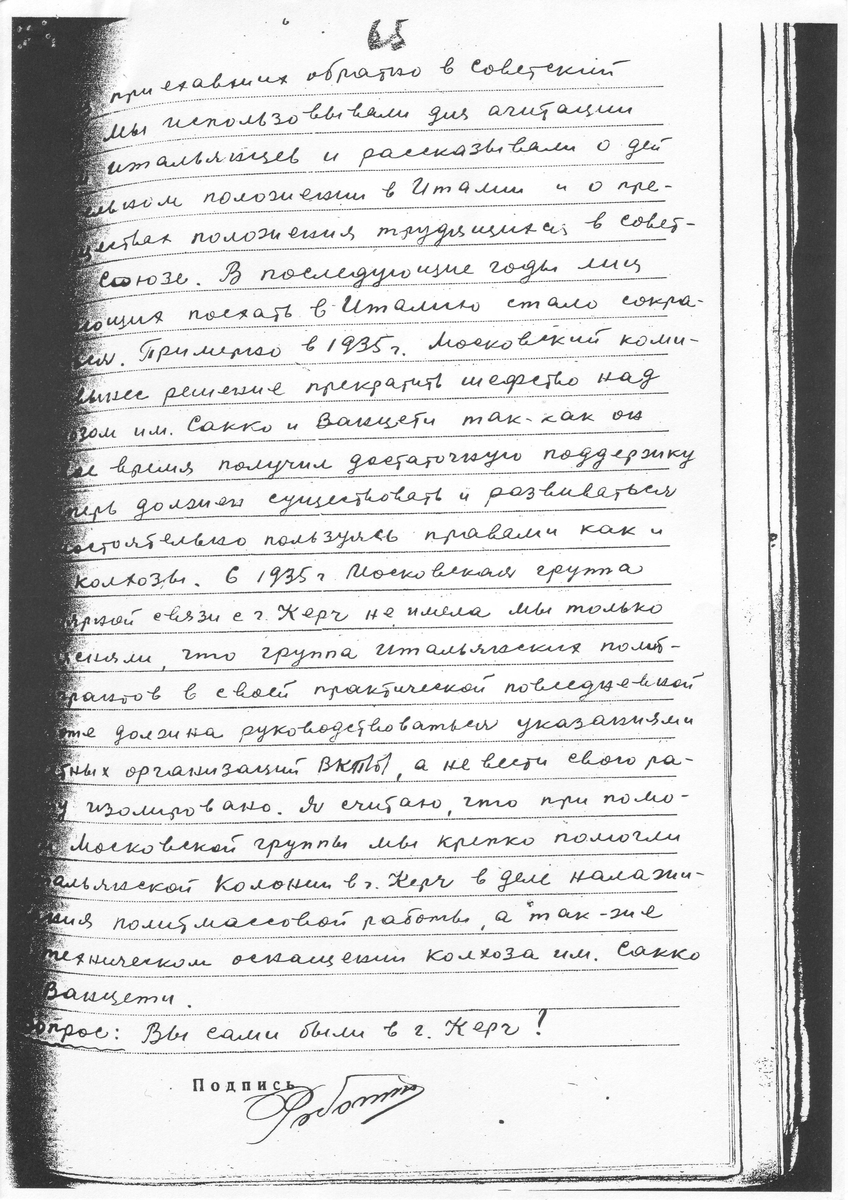 65
приехавших обратно в Советский
мы использоввывали для агитации
итальянцев и рассказывали о дей
ельном положении в Италии и о пре-
ществах положения трудящихся в Совет-
Союзе. В последующие годы лиц
ющих поехать в Италию стало сокра-
ся. Примерно в 1935 г. Московский коми-
вынес решение прекратить шефство над
озом им. Сакко и Ванцети так-как он
ое время получил достаточную поддержку
перь должен существовать и развиваться
остоятельно пользуясь правами как и
колхозы. в 1935 г Московская группа
лярной связи с г. Керч не имела мы только
ясняли, что группа итальянских полит-
грантов в своей практической повседневной
оте должна руководствоваться указаниями
тных организаций ВКП/б/, а не вести свого ра-
у изолировано. Я считаю, что при помо-
и Московской группы мы крепко помогли
тальянской Колонии в г. Керч в деле налажи-
ния политмассовой работы, а так-же
техническом оснащении колхоза им. Сакко
Ванцети.
опрос: Вы сами были в г. Керч!
Подпись
Роботти